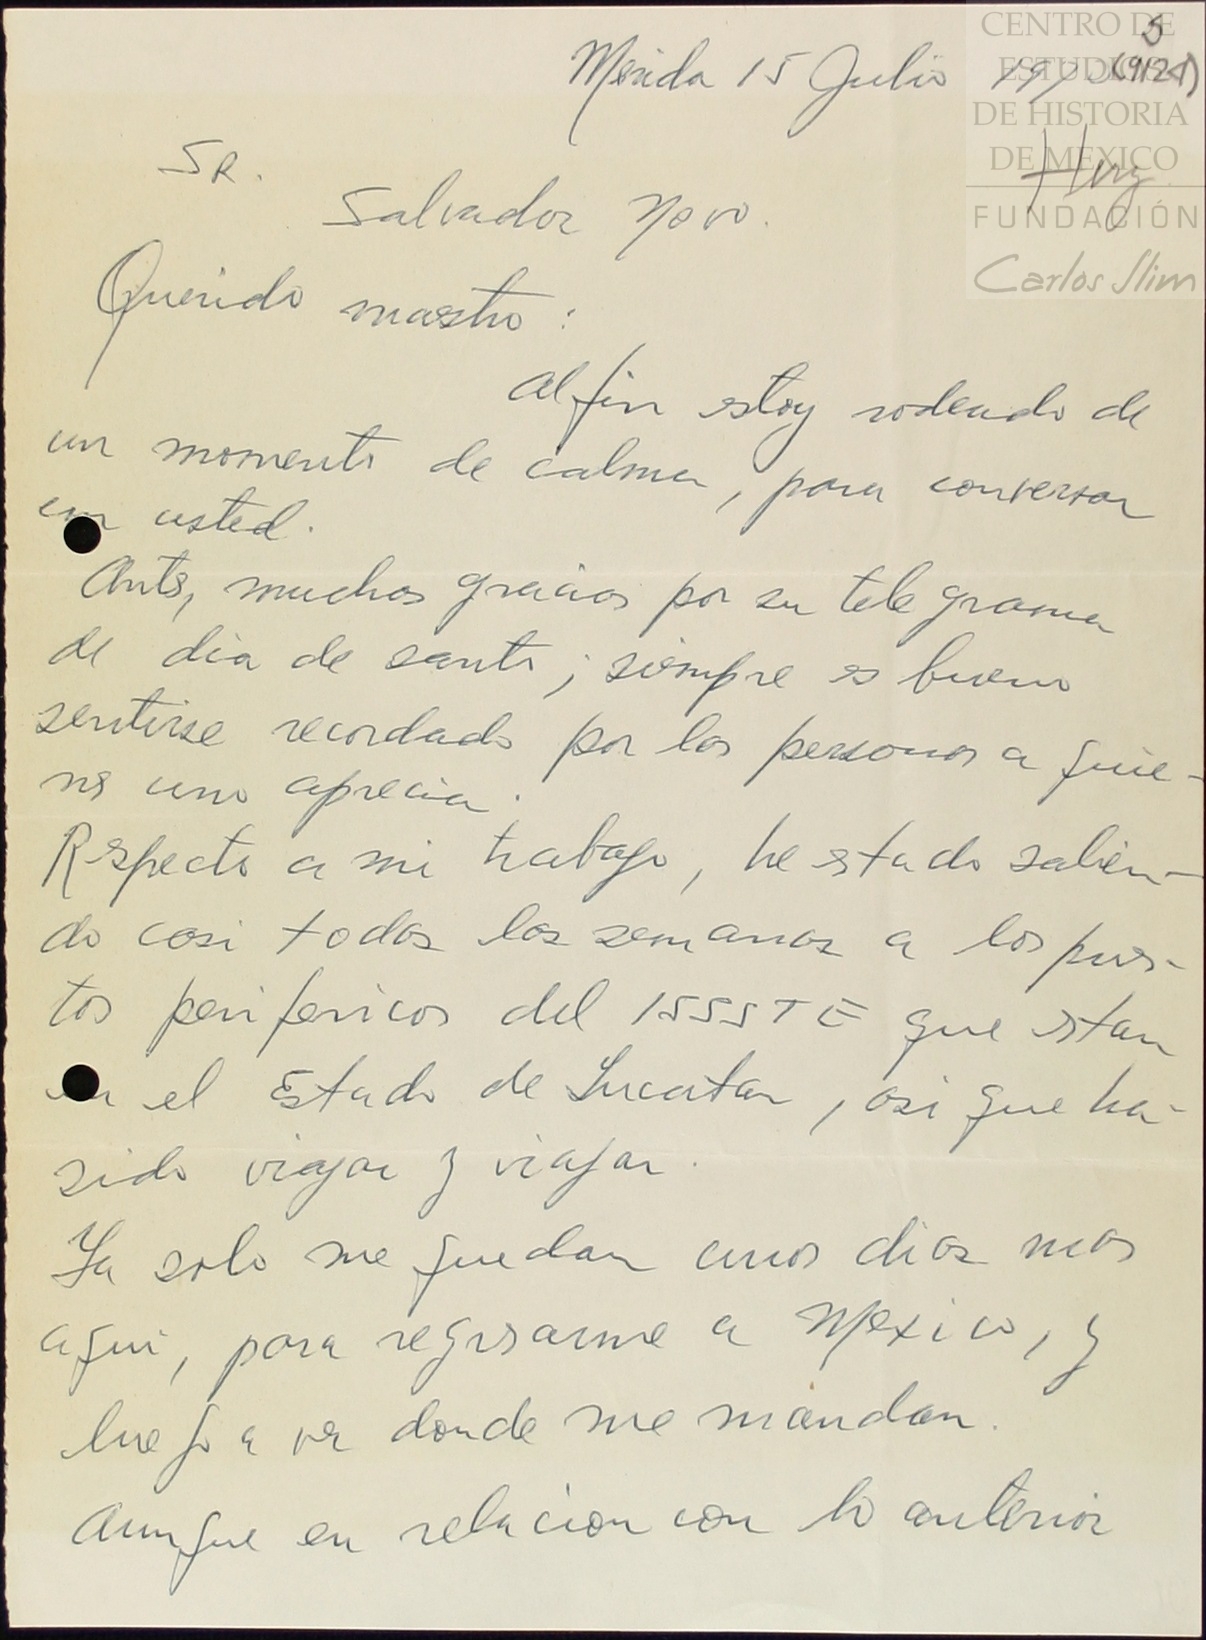 CENTRO DE
ESTUDIOS
DE HISTORIA
DE MEXICO
FUNDACIÓN
Carlos Slim
5
(9/24)
Merida 15 Julio
Sr.
Salvador Novo.
Querido maestro :
Al fin estoy rodeado de
un momento de calma, para conversar
con usted.
Antes, muchas gracias por su telegrama
de dia de santo ; siempre es bueno
sentirse recordado por las personas a quie-
nes uno aprecia.
Respecto a mi trabajo, he estado salien-
do casi todas las semanas a los pues-
tos perifericos del ISSSTE que estan
en el Estado de Yucatan, asi que ha
sido viajar y viajar.
Ya solo me quedan unos dias mas
aqui, para regresarme a Mexico, y
luego a ver donde me mandan.
Aunque en relacion con lo anterior